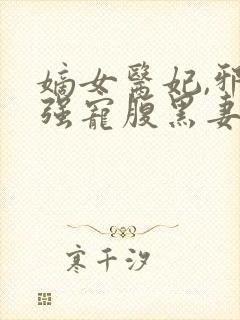 嫡女醫妃,邪
強寵腹黑妻
寒千汐